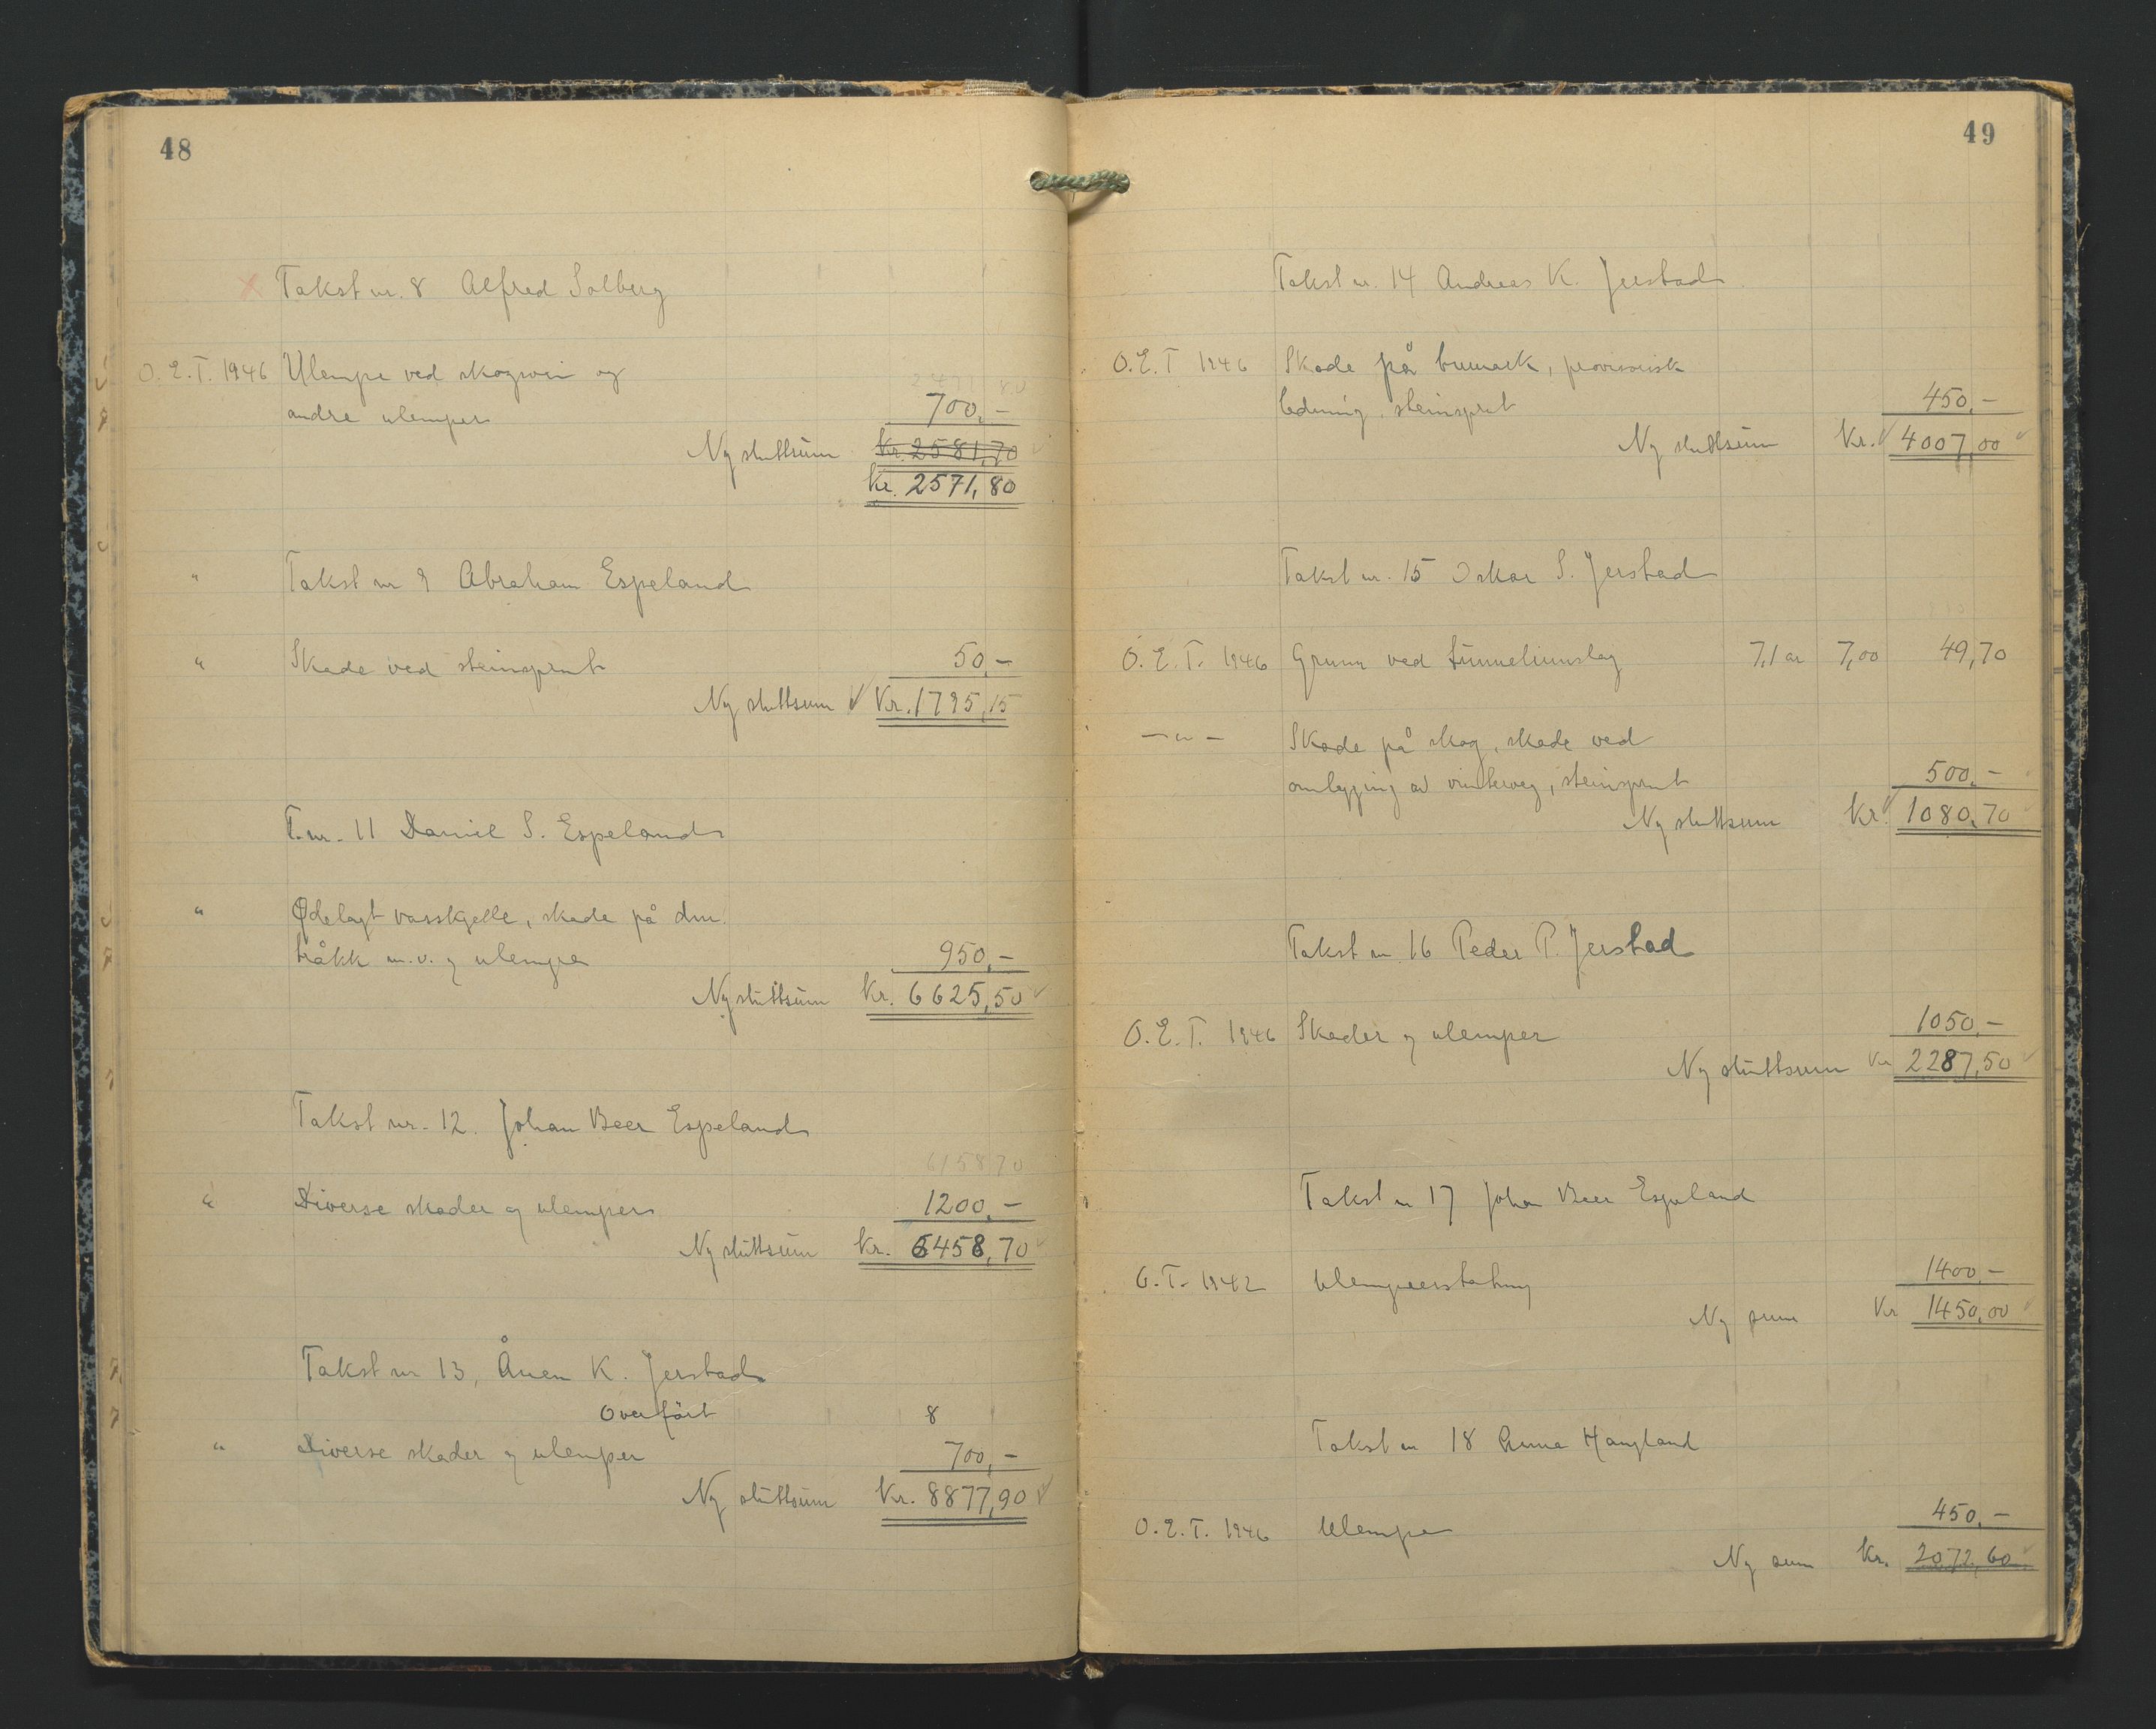 48
Takst nr. 8 Alfred Solberg
O.E.T. 1946 Ulempe ved skogsvin og
andre ulemper 700,-
Ny sluttsum Kr. 2581,70
Kr. 2571,80
" Takst nr 9 Abraham Espeland
" Skade ved steinsprut 50,-
Ny sluttsum Kr. 1795,15
T. nr. 11 Daniel S. Espeland
" Ødelagt vasskjelle, skade på
tråkk m.v. og ulemper 950,-
Ny sluttsum Kr. 6625,50
Takst nr. 12. Johan Beer Espeland
6158 70
" Diverse skader og ulemper 1200,-
Ny sluttsum Kr. 6458,70
Takst nr 13, Ånen K. Jerstad
Overført 8
" Diverse skader og ulemper 700,-
Ny sluttsum Kr. 8877,90
49
Takst nr. 14 Andreas K. Jerstad
O.E.T 1946 Skade på bumark, provisorisk
ledning, steinsprut 450,-
Ny sluttsum Kr. 4007,00
Takst nr. 15 Oskar S. Jerstad
O.E.T. 1946 Grunn ved tunnelinnslag 7,1 ar 7,00 49,70
— " — Skade på skog, skade ved
omlegging av vinterveg, steinsprut 500,-
Ny sluttsum Kr. 1080,70
Takst nr 16 Peder P. Jerstad
O.E.T. 1946 Skader og ulemper 1050,-
Ny sluttsum Kr 2287,50
Takst nr 17 Johan Beer Espeland
O.T. 1942 Ulempeerstatning 1400,-
Ny sum Kr 1450,00
Takst nr 18 Anna Haugland
O.E.T. 1946 Ulempe 450,-
Ny sum Kr. 2072,60